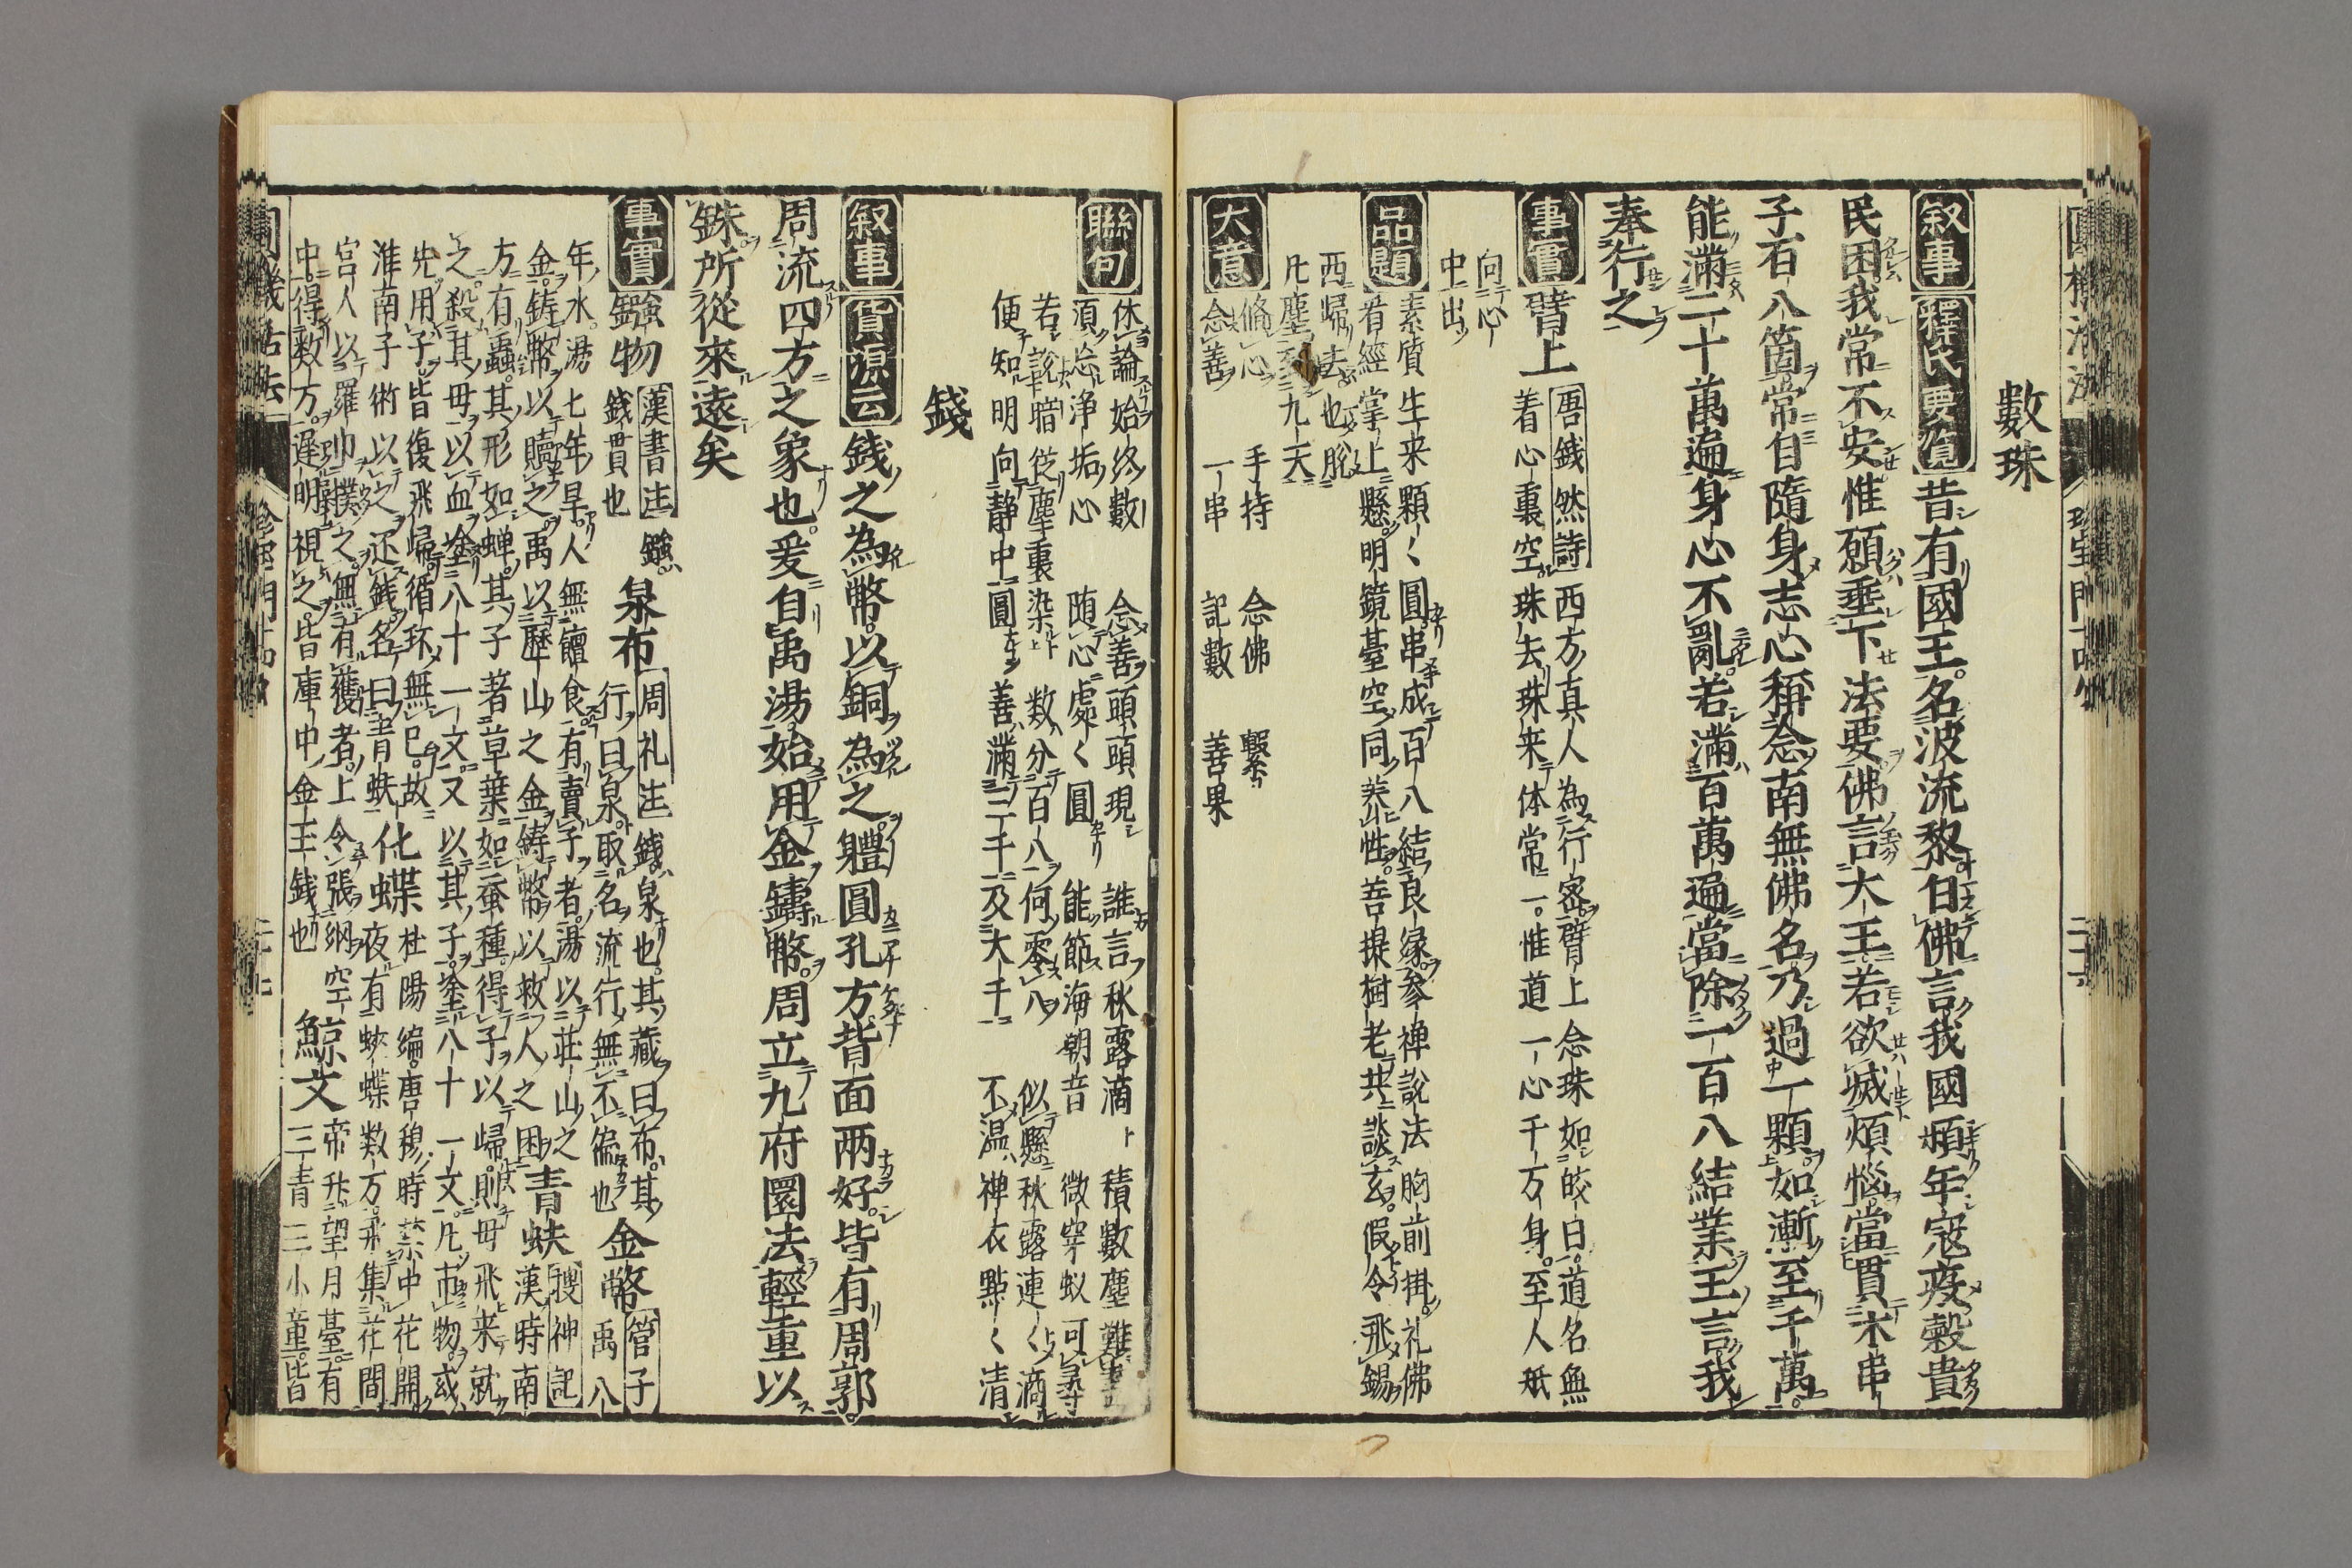 數珠
叙事 釋氏要覧 昔有國王名波流黎白佛言我國頻年寇疫穀貴
民困我常不安惟願垂下法要佛言大王若欲滅煩惱當貫木串
子石八箇常自隨身志心稱念南無佛名乃過一顆如漸至千萬
能滿二十萬遍身心不亂若滿百萬遍當除一百八結業王言我
奉行之
事實 臂上 吾錢然詩 西方真人為行密臂上念珠如皎日道名無
着心裏空珠去珠来体常一惟道一心千万身至人祇
向心
中出
品題 素質生来顆〱圓串成百八結良縁参禅說法胸前掛礼佛
看經掌上懸明鏡臺空同養性菩提樹老共談玄假令飛錫
西歸去也脫
凡塵到九天
大意 脩心 手持 念佛 繋
念善 一串 記數 善果
聯句 休論始終數 念善頭頭現 誰言秋露滴 積數塵難
須忘浄垢心 随心處〱圓 能節海朝音 微穿蚁可尋
若說暗從塵裏染 数分百八何零八 似懸秋露連〱滴
便知明向静中圓 善滿三千及大千 不温禅衣點〱清
錢
叙事 貨源云 錢之為幣以銅為之體圓孔方背面两好皆有周郭
周流四方之象也爰自禹湯始用金鑄幣周立九府圜法輕重以
銖所從來遠矣
事實 鏹物 漢書注 鏹 錢貫也 泉布 周礼注 錢泉也其藏曰布其
行曰泉取名流行無不徧也 金幣 管子 禹八
年水湯七年旱人無饘食有賣子者湯以荘山之
金鋳幣以贖之禹以歷山之金鋳幣以救人之困 青蚨 搜神記 漢時南
方有蟲其形如蝉其子著草葉如蚕種得子以歸則母飛来就
之殺其母以血塗八十一文又以其子塗八十一文凡市物或
先用子皆復飛歸循环無已故
淮南子術以之还錢名曰青蚨 化蝶 杜陽編唐穆時禁中花開
夜有蛺蝶数万飛集花間
宮人以羅巾撲之無有獲者上令張網空
中得数万遅明視之皆庫中金玉錢也 鯨文 帝升望月臺有
三青三小童皆